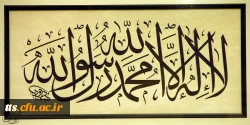 لا إله إلا الله محمد رسول الله
us.cfu.ac.ir